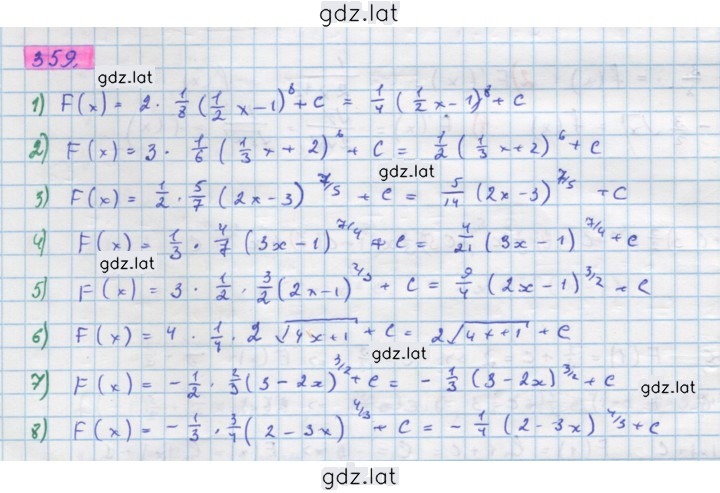 gdz.lat
359.
gdz.lat
1) F(x) = 2 · 1/8 (1/2 x - 1)^8 + C = 1/4 (1/2 x - 1)^8 + C
2) F(x) = 3 · 1/6 (1/3 x + 2)^6 + C = 1/2 (1/3 x + 2)^6 + C
gdz.lat
3) F(x) = 1/2 · 5/7 (2x - 3)^7/5 + C = 5/14 (2x - 3)^7/5 + C
4) F(x) = 1/3 · 4/7 (3x - 1)^7/4 + C = 4/21 (3x - 1)^7/4 + C
gdz.lat
5) F(x) = 3 · 1/2 · 3/2 (2x - 1)^2/3 + C = 9/4 (2x - 1)^3/2 + C
6) F(x) = 4 · 1/4 · 2 √4x + 1 + C = 2√4x + 1 + C
gdz.lat
7) F(x) = - 1/2 · 2/3 (3 - 2x)^3/2 + C = - 1/3 (3 - 2x)^3/2 + C
8) F(x) = - 1/3 · 3/4 (2 - 3x)^4/3 + C = - 1/4 (2 - 3x)^4/3 + C
gdz.lat